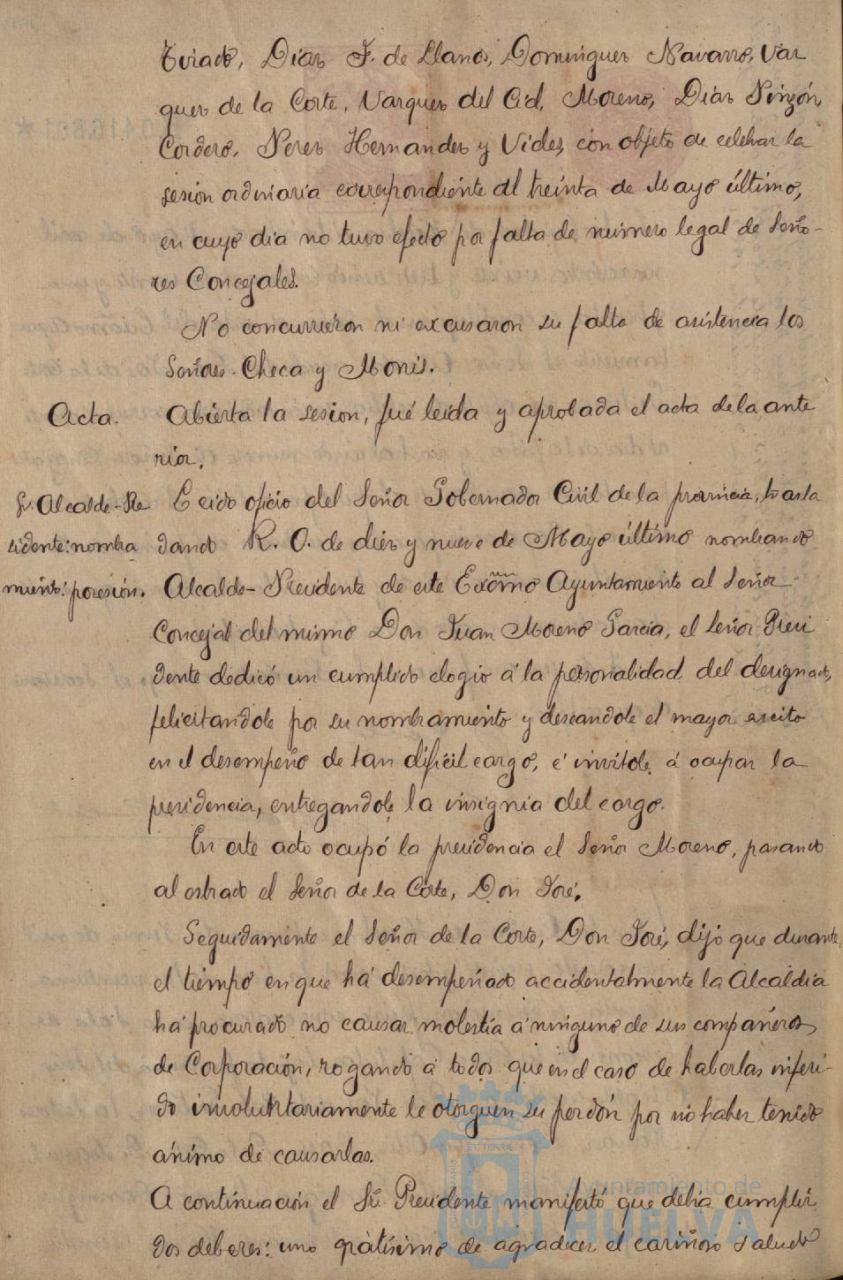 Tirado, Díaz F. de Llanos, Domínguez Navarro, Vaz
quez de la Corte, Vazquez del Cid, Moreno, Díaz Pinzón,
Cordero, Perez Hernandez y Vides, con objeto de celebrar la
sesión ordinaria correspondiente al treinta de Mayo último,
en cuyo dia no tuvo efecto por falta de número legal de Seño-
res Concejales.
No concurrieron ni excusaron su falta de asistencia los
Señores Checa y Monís.
Acta. Abierta la sesion, fué leida y aprobada el acta de la ante
rior.
Sr. Alcalde-Pre Leido oficio del Señor Gobernador Civil de la provincia, trasla
sidente: nombra dando R. O. de diez y nueve de Mayo último nombrando
miento: posesión. Alcalde-Presidente de este Excmo Ayuntamiento al Señor
Concejal del mismo Don Juan Moreno García, el Señor Presi
dente dedicó un cumplido elogio á la personalidad del designado,
felicitandole por su nombramiento y deseandole el mayor exito
en el desempeño de tan dificil cargo, é invitole á ocupar la
presidencia, entregandole la insignia del cargo.
En este acto ocupó la presidencia el Señor Moreno, pasando
al estrado el Señor de la Corte, Don José.
Seguidamente el Señor de la Corte, Don José, dijo que durante
el tiempo en que há desempeñado accidentalmente la Alcaldía
há procurado no causar molestia á ninguno de sus compañeros
de Corporación, rogando á todos que en el caso de haberlas inferi-
do involuntariamente le otorguen su perdón por no haber tenido
ánimo de causarlas.
A continuación el Sr. Presidente manifestó que debia cumplir
dos deberes: uno gratísimo de agradecer el cariñoso saludo
Ayuntamiento de
HUELVA